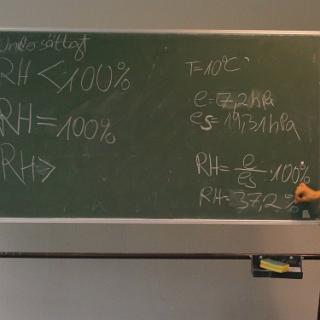 Undersättigt
RH < 100%
RH = 100%
RH >
T = 10°C
e = 7,2 hPa
es = 19,31 hPa
RH = e/es · 100%
RH = 37,2%